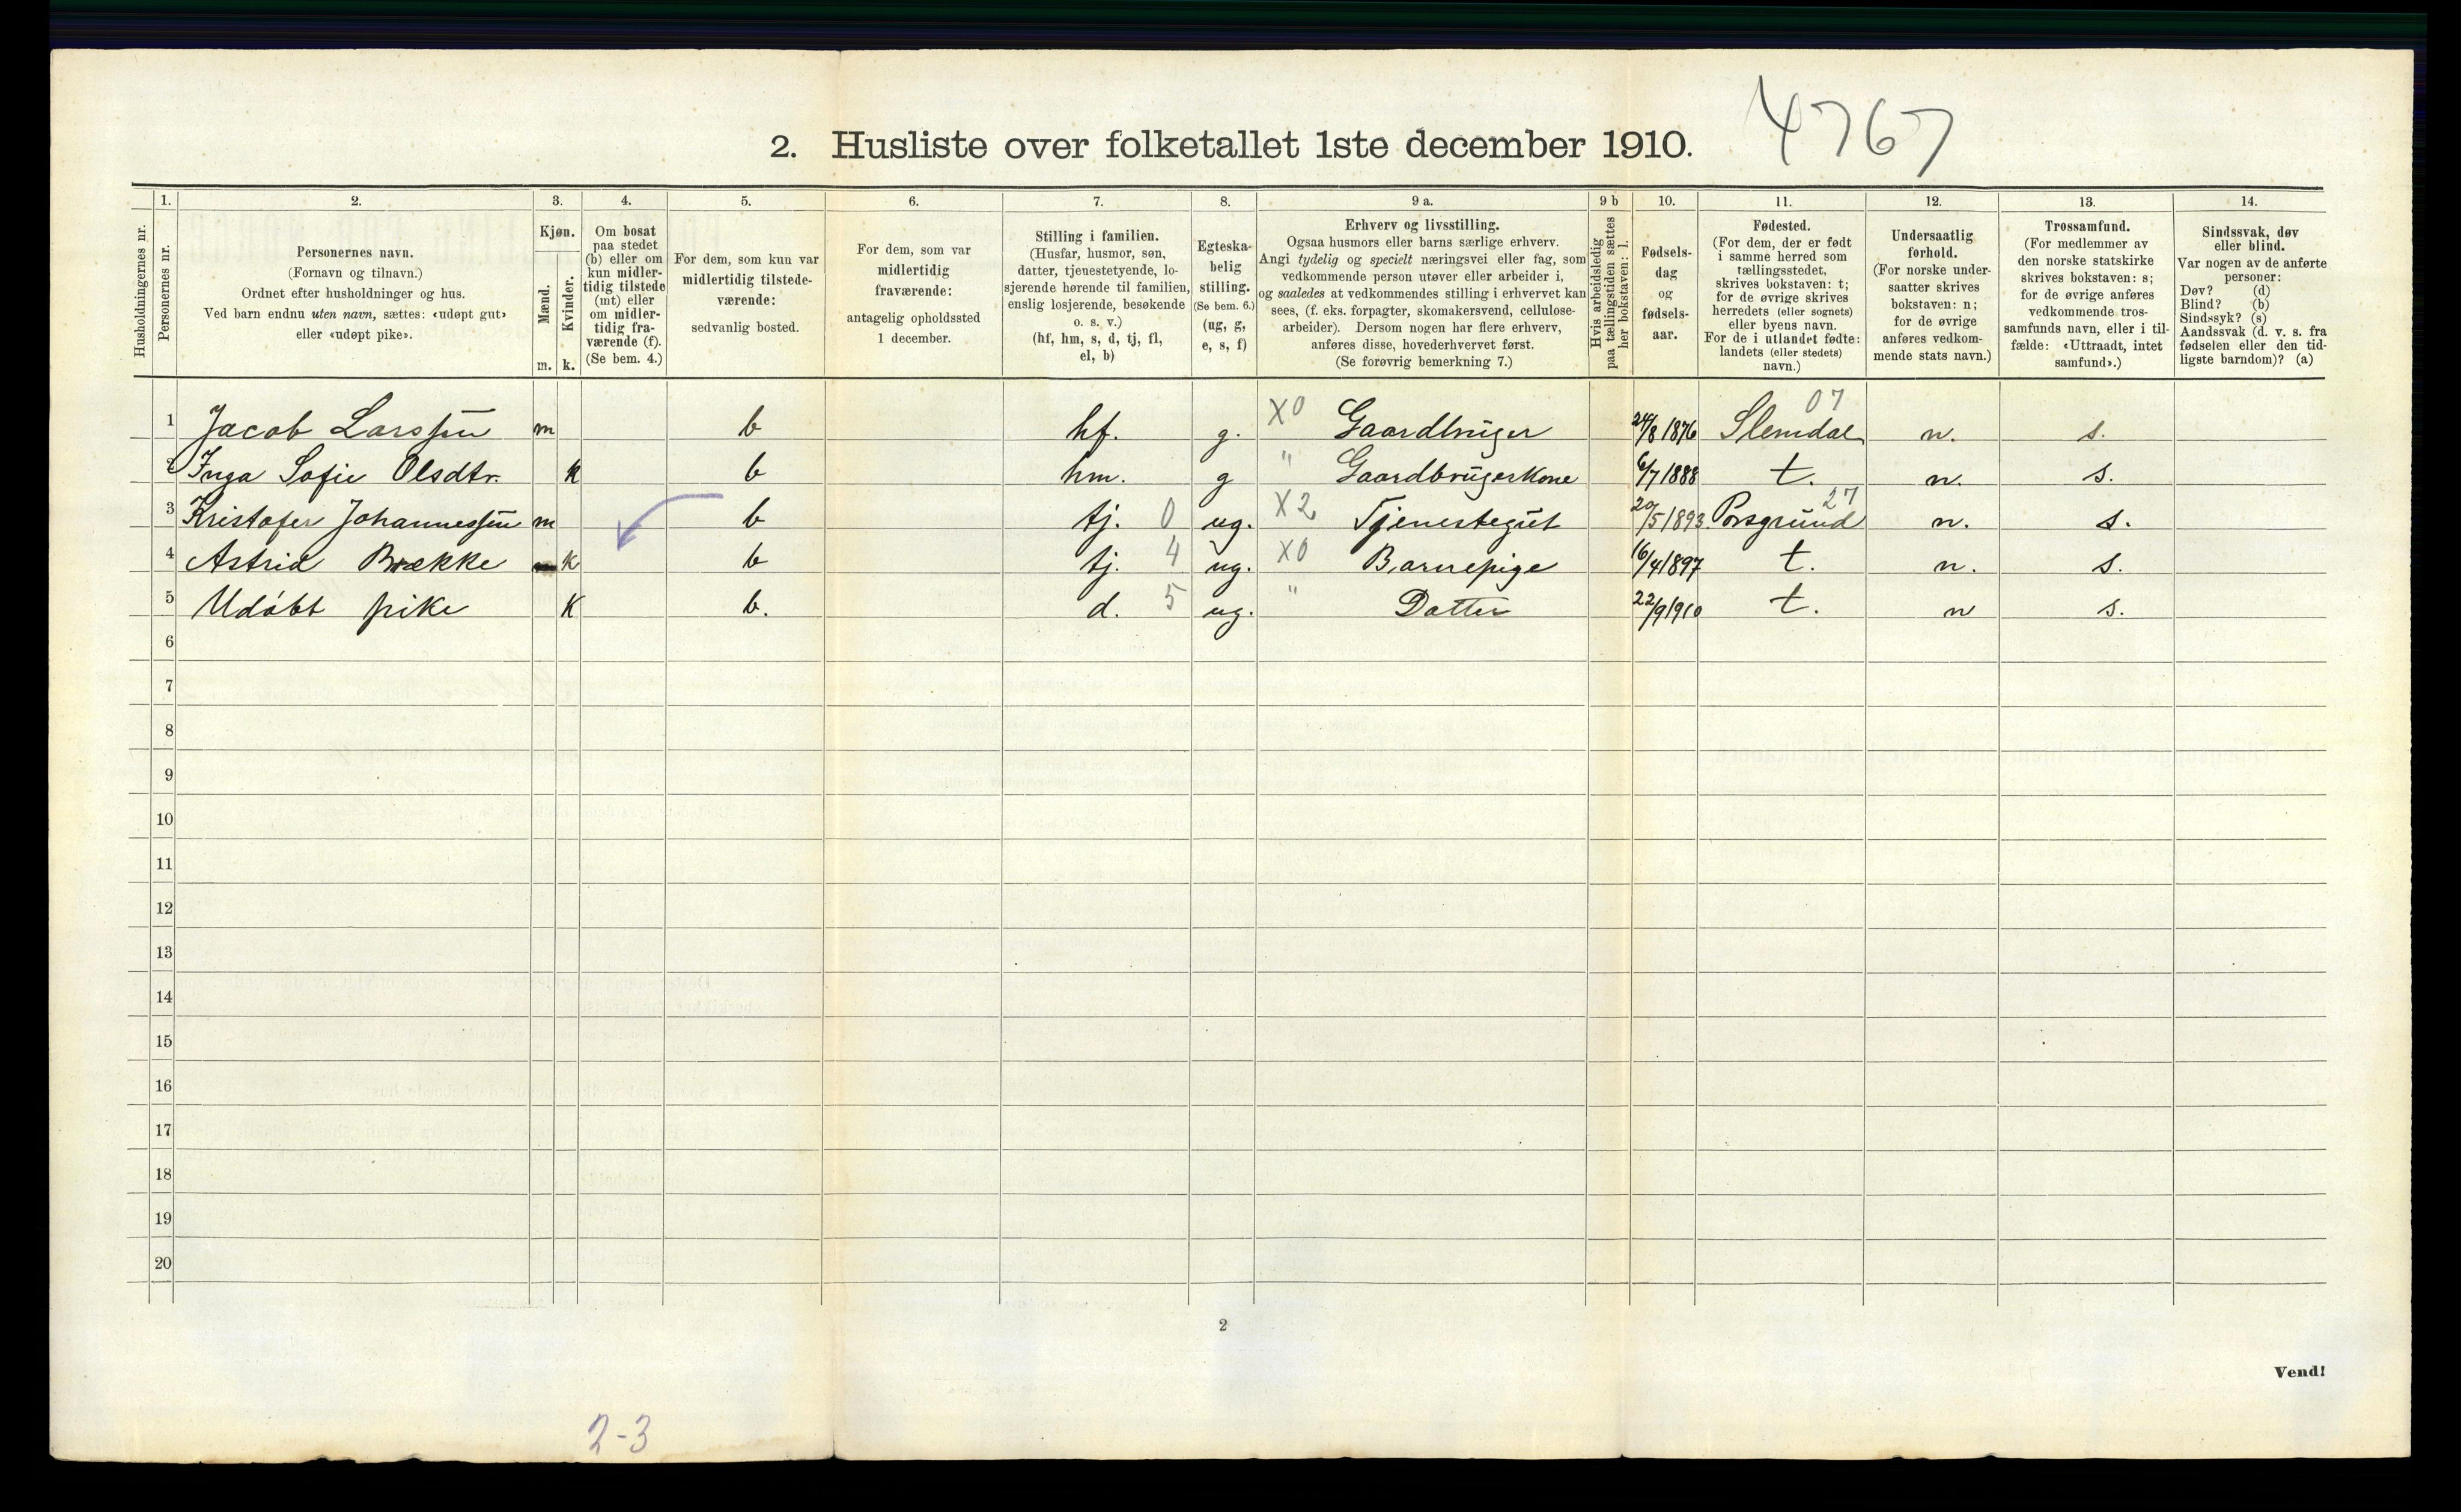 4767
2. Husliste over folketallet 1ste december 1910.
Husholdningernes nr.
1.
Personernes nr.
2.
Personernes navn.
(Fornavn og tilnavn.)
Ordnet efter husholdninger og hus.
Ved barn endnu uten navn, sættes: «udøpt gut»
eller «udøpt pike».
3.
Kjøn.
Mænd.
Kvinder.
m. k.
4.
Om bosat
paa stedet
(b) eller om
kun midler-
tidig tilstede
(mt) eller
om midler-
tidig fra-
værende (f).
(Se bem. 4.)
5.
For dem, som kun var
midlertidig tilstede-
værende:
sedvanlig bosted.
6.
For dem, som var
midlertidig
fraværende:
antagelig opholdssted
1 december.
7.
Stilling i familien.
(Husfar, husmor, søn,
datter, tjenestetyende, lo-
sjerende hørende til familien,
enslig losjerende, besøkende
o. s. v.)
(hf, hm, s, d, tj, fl,
el, b)
8.
Egteska-
belig
stilling.
(Se bem. 6.)
(ug, g,
e, s, f)
9 a.
Erhverv og livsstilling.
Ogsaa husmors eller barns særlige erhverv.
Angi tydelig og specielt næringsvei eller fag, som
vedkommende person utøver eller arbeider i,
og saaledes at vedkommendes stilling i erhvervet kan
sees, (f. eks. forpagter, skomakersvend, cellulose-
arbeider). Dersom nogen har flere erhverv,
anføres disse, hovederhvervet først.
(Se forøvrig bemerkning 7.)
9 b
Hvis arbeidsledig
paa tællingstiden sættes
her bokstaven: l.
10.
Fødsels-
dag
og
fødsels-
aar.
11.
Fødested.
(For dem, der er født
i samme herred som
tællingsstedet,
skrives bokstaven: t;
for de øvrige skrives
herredets (eller sognets)
eller byens navn.
For de i utlandet fødte:
landets (eller stedets)
navn.)
12.
Undersaatlig
forhold.
(For norske under-
saatter skrives
bokstaven: n;
for de øvrige
anføres vedkom-
mende stats navn.)
13.
Trossamfund.
(For medlemmer av
den norske statskirke
skrives bokstaven: s;
for de øvrige anføres
vedkommende tros-
samfunds navn, eller i til-
fælde: «Uttraadt, intet
samfund».)
14.
Sindssvak, døv
eller blind.
Var nogen av de anførte
personer:
Døv? (d)
Blind? (b)
Sindssyk? (s)
Aandssvak (d. v. s. fra
fødselen eller den tid-
ligste barndom)? (a)
07
1 Jacob Larssen m b hf. g. X0 Gaardbruger 24/8 1876 Slemdal n. s.
2 Inga Sofie Olsdtr. k b hm. g " Gaardbrugerkone 6/7 1888 t. n. s.
27
3 Kristofer Johannessen m b tj. 0 ug. X2 Tjenestegut 20/5 1893 Porsgrund n. s.
4 Astrid Brække k b tj. 4 ug. X0 Barnepige 16/4 1897 t. n. s.
5 Udöbt pike K b. d. 5 ug. " Datter 22/9 1910 t. n s.
6
7
8
9
10
11
12
13
14
15
16
17
18
19
20
2
Vend!
2-3